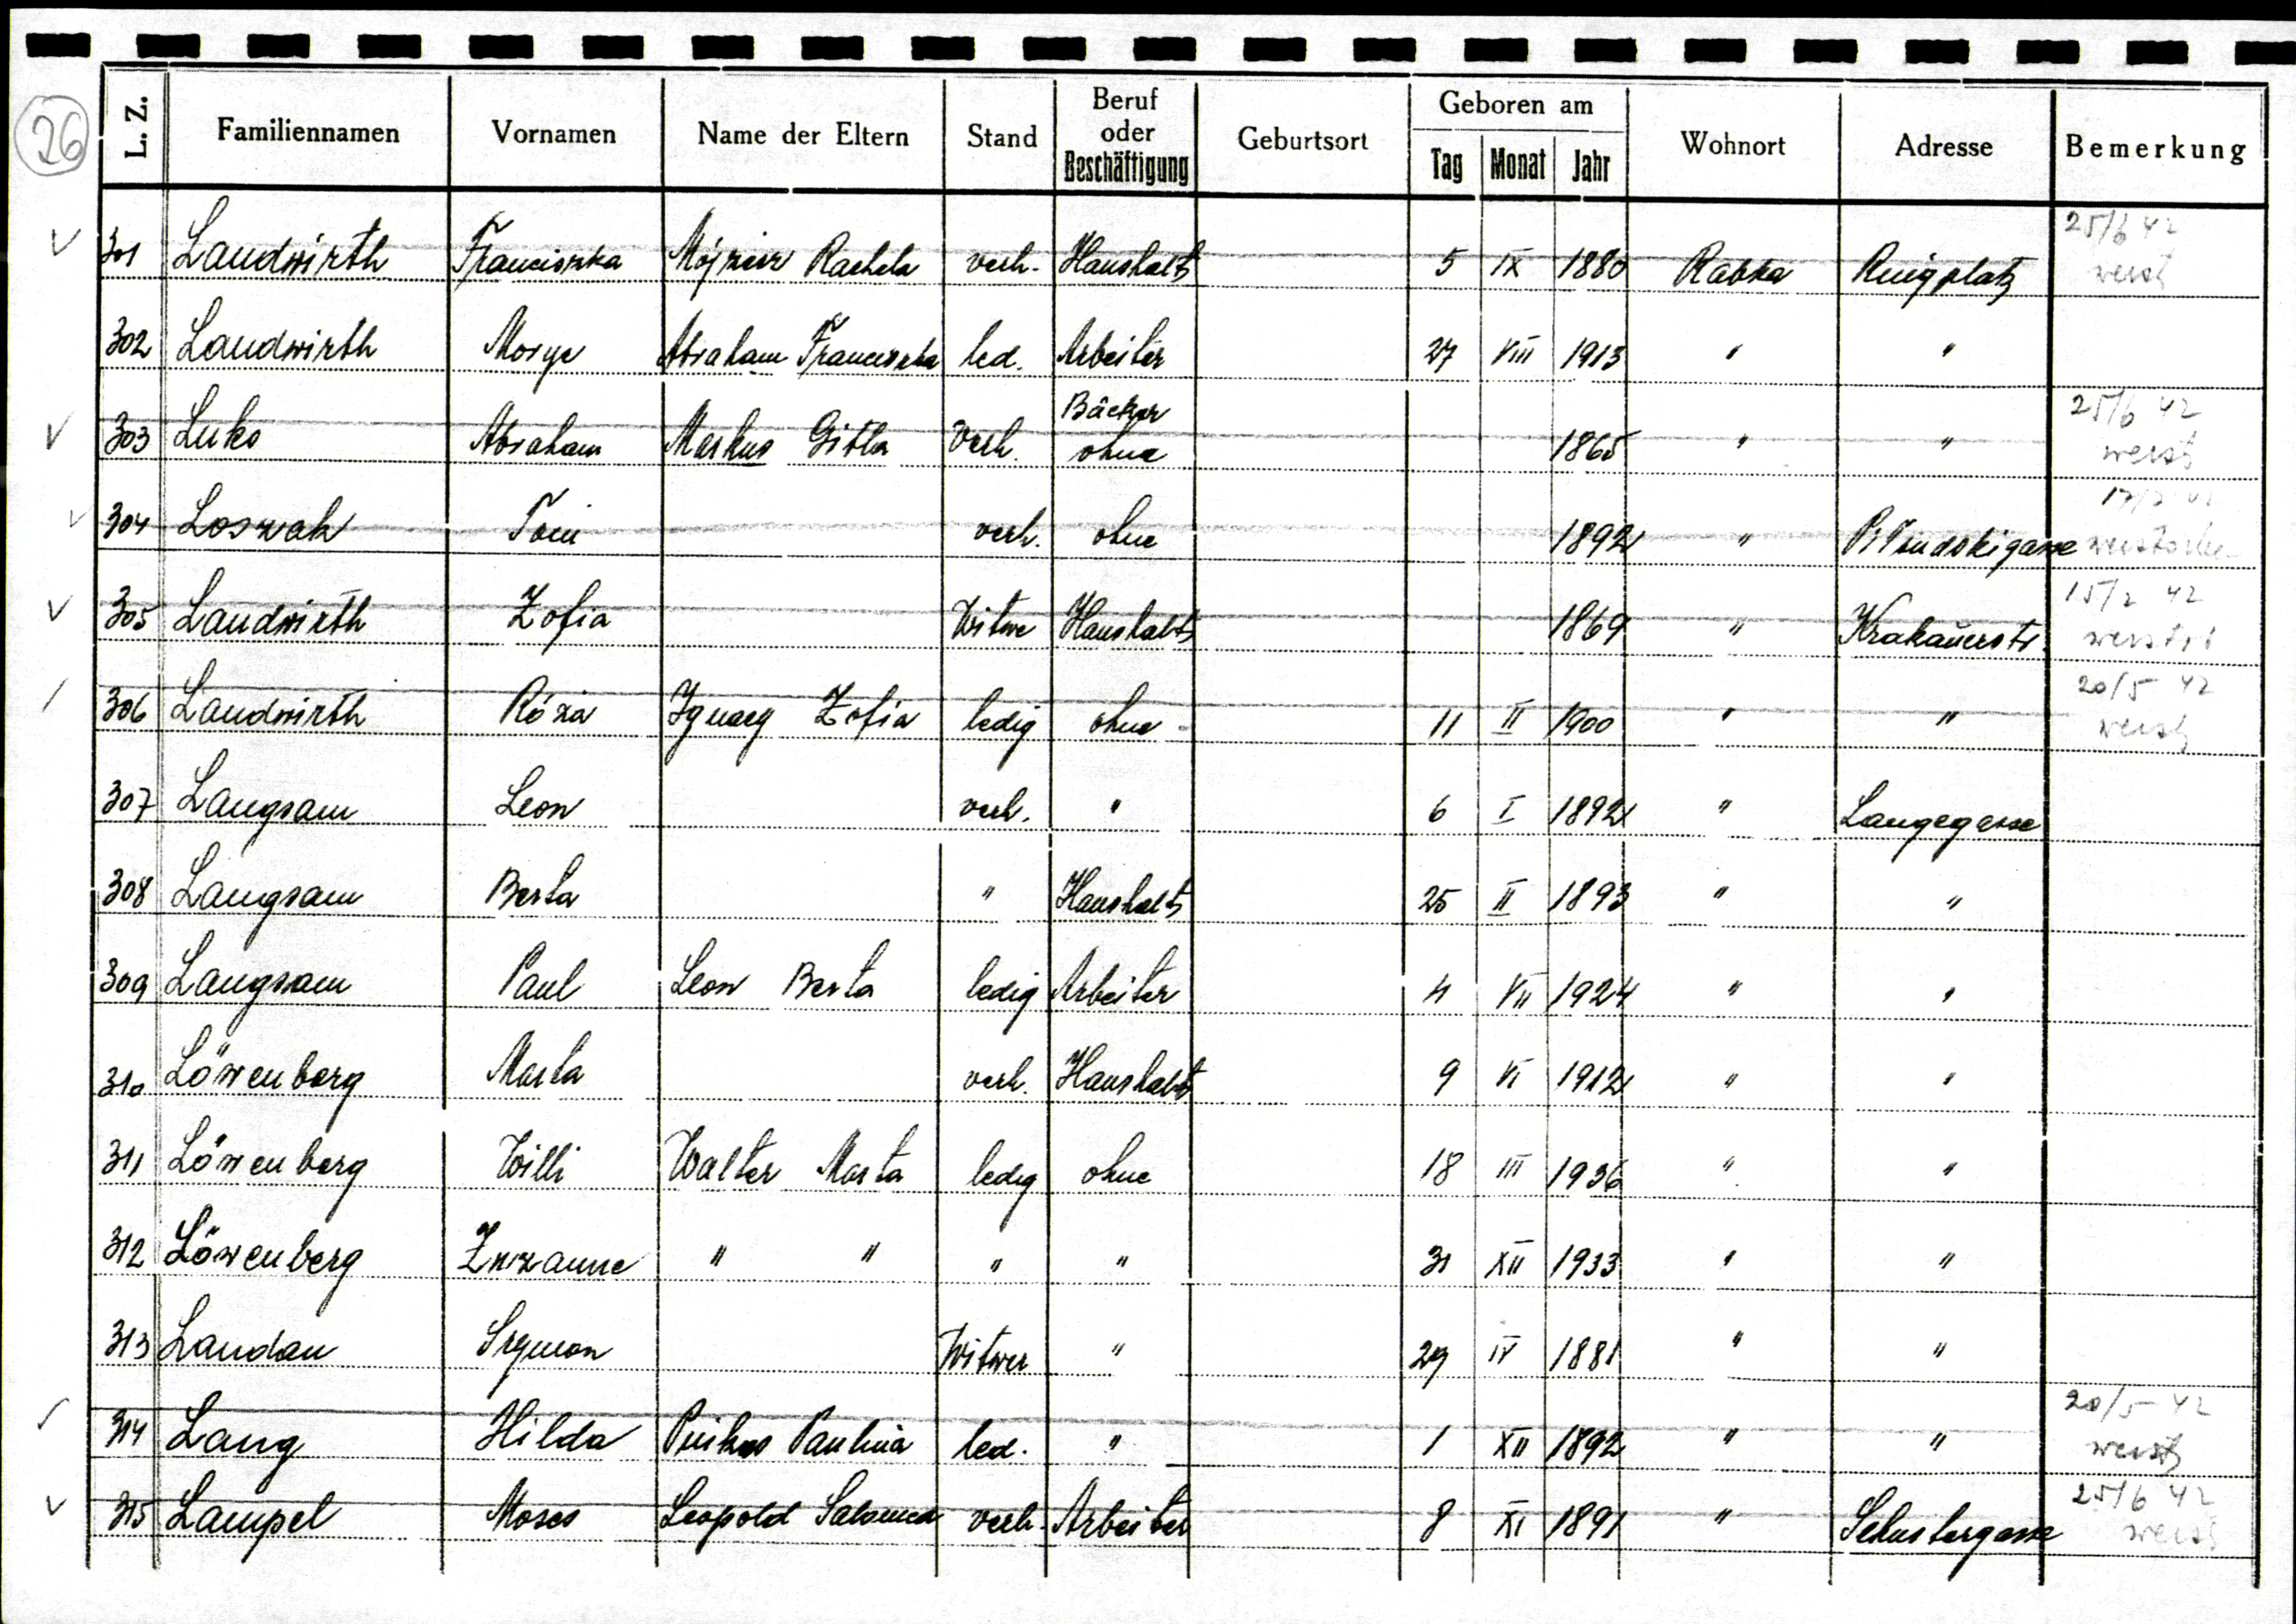 26
L. Z. Familiennamen Vornamen Name der Eltern Stand Beruf oder Beschäftigung Geburtsort Geboren am Tag Monat Jahr Wohnort Adresse Bemerkung
25/6 42
301 Landwirth Franciszka Mojżesz Rachela verh. Haushalt 5 IX 1880 Rabka Ringplatz
302 Landwirth Morye Abraham Franciszka led. Arbeiter 27 VIII 1913 " "
Bäcker 25/6 42
303 Luks Abraham Markus Gitla verh. ohne 1865 " "
304 Loszak Toni verh. ohne 1892 " Piłsudskigasse
15/2 42
305 Landwirth Zofia Witwe Haushalt 1869 " Krakauerstr.
20/5 42
306 Landwirth Róża Ignacy Zofia ledig ohne 11 II 1900 " "
307 Langsam Leon verh. " 6 I 1892 " Langegasse
308 Langsam Berta " Haushalt 25 II 1893 " "
309 Langsam Paul Leon Berta ledig Arbeiter 4 VII 1924 " "
310 Löwenberg Marta verh. Haushalt 9 VI 1912 " "
311 Löwenberg Willi Walter Marta ledig ohne 18 III 1936 " "
312 Löwenberg Zuzanne " " " " 31 XII 1933 " "
313 Landau Szymon Witwer " 29 IV 1881 " "
20/5 42
314 Lang Hilda Pinkas Paulina led. " 1 XII 1892 " "
25/6 42
315 Lampel Moses Leopold Salomea verh. Arbeiter 8 XI 1891 " Schustergasse